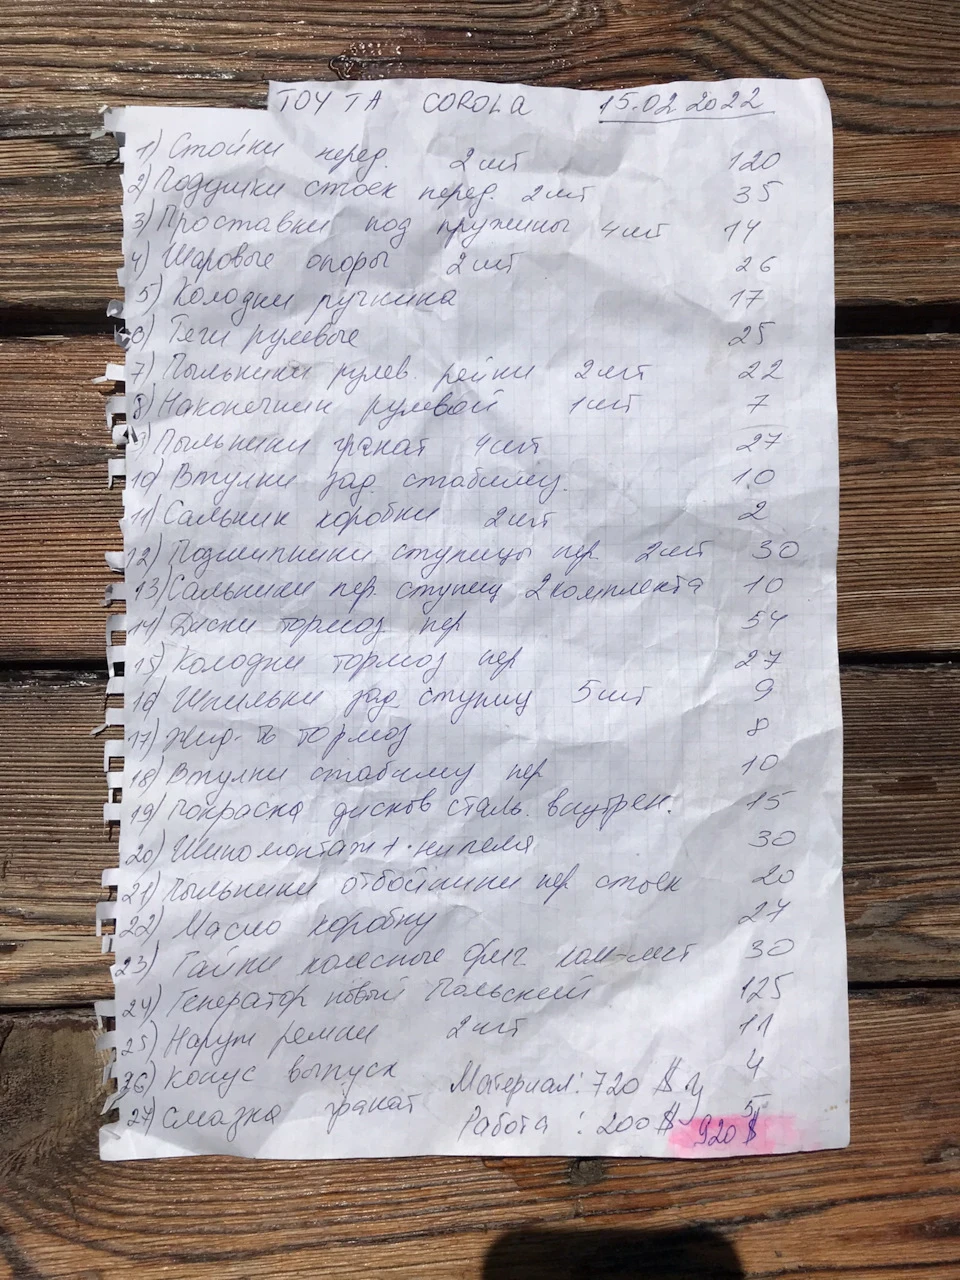 TOYTA COROLA 15.02 2022
1) Стойки перед. 2 шт 120
2) Подушки стоек перед. 2 шт 35
3) Проставки под пружины 4 шт 14
4) Шаровые опоры 2 шт 26
5) Колодки ручника 17
6) Тяги рулевые 25
7) Пыльники рулев. рейки 2 шт 22
8) Наконечник рулевой 1 шт 7
9) Пыльники гранат 4 шт 27
10) Втулки зад. стабилиз. 10
11) Сальник коробки 2 шт 2
12) Подшипники ступицы пер. 2 шт 30
13) Сальники пер. ступиц 2 комплекта 10
14) Диски тормоз пер 54
15) Колодки тормоз пер 27
16) Шпильки зад. ступиц 5 шт 9
17) Жид-ть тормоз 8
18) Втулки стабилиз пер 10
19) Покраска дисков сталь. внутрен. 15
20) Шиномонтаж + нипеля 30
21) Пыльники отбойники пер стоек 20
22) Масло коробку 27
23) Гайки колесные ком-лект 30
24) Генератор новый Польский 125
25) Наруж ремни 2 шт 11
26) Конус выпуск 4
Материал: 720 $
27) Смазка гранат 5
Работа : 200 $ 920 $